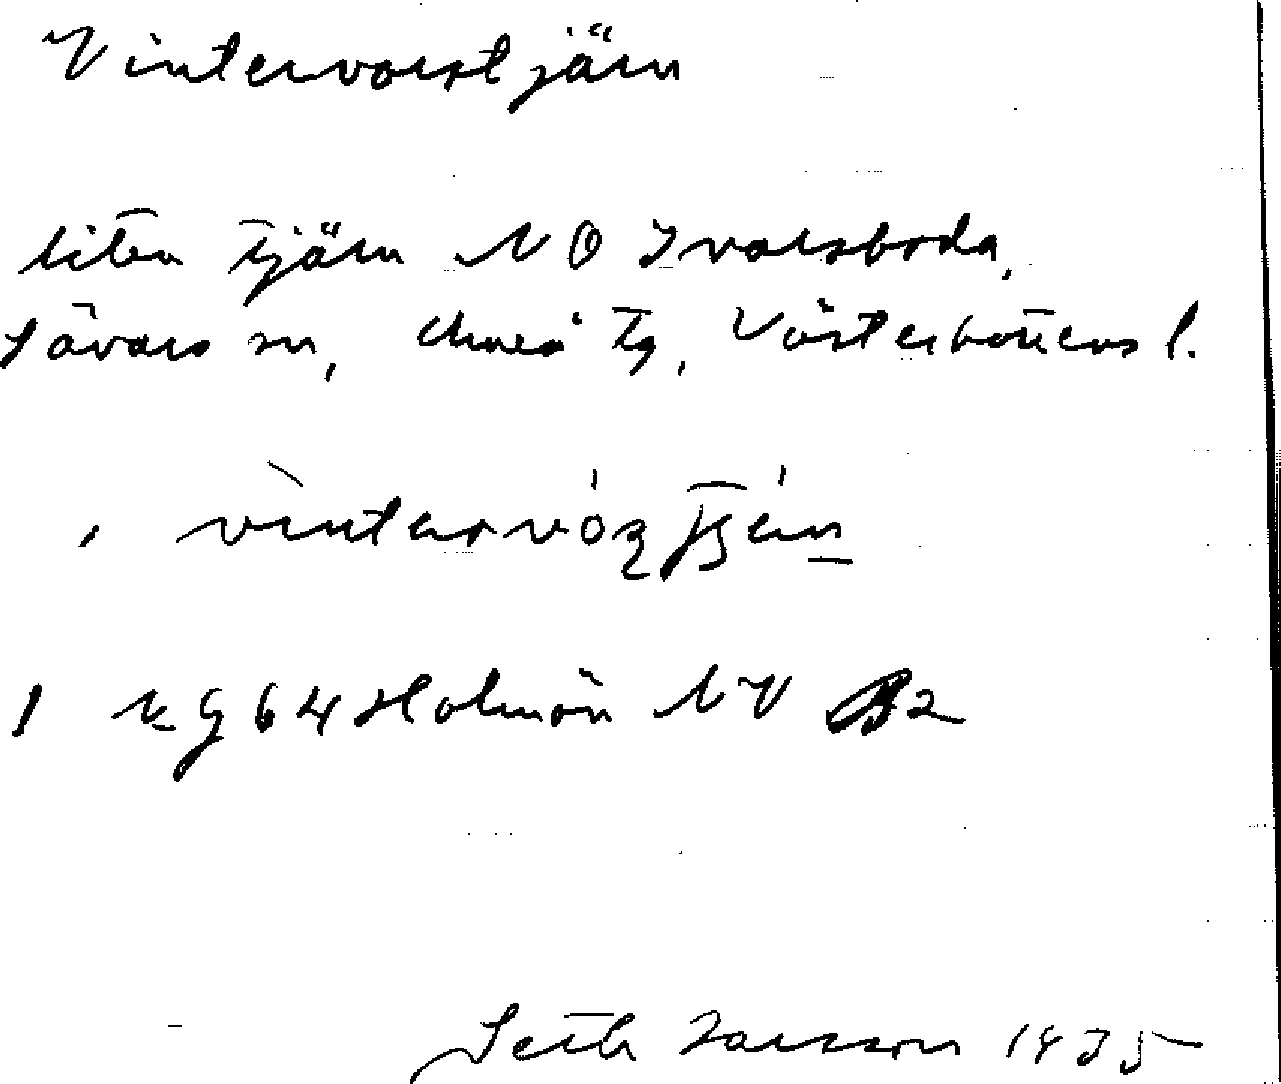 Vintervarstjärn
liten tjärn NO Ivarsboda,
Sävars sn, Umeå tg, Västerbottens l.
EG 64 Holmön NV B2
Seth Larsson 1935